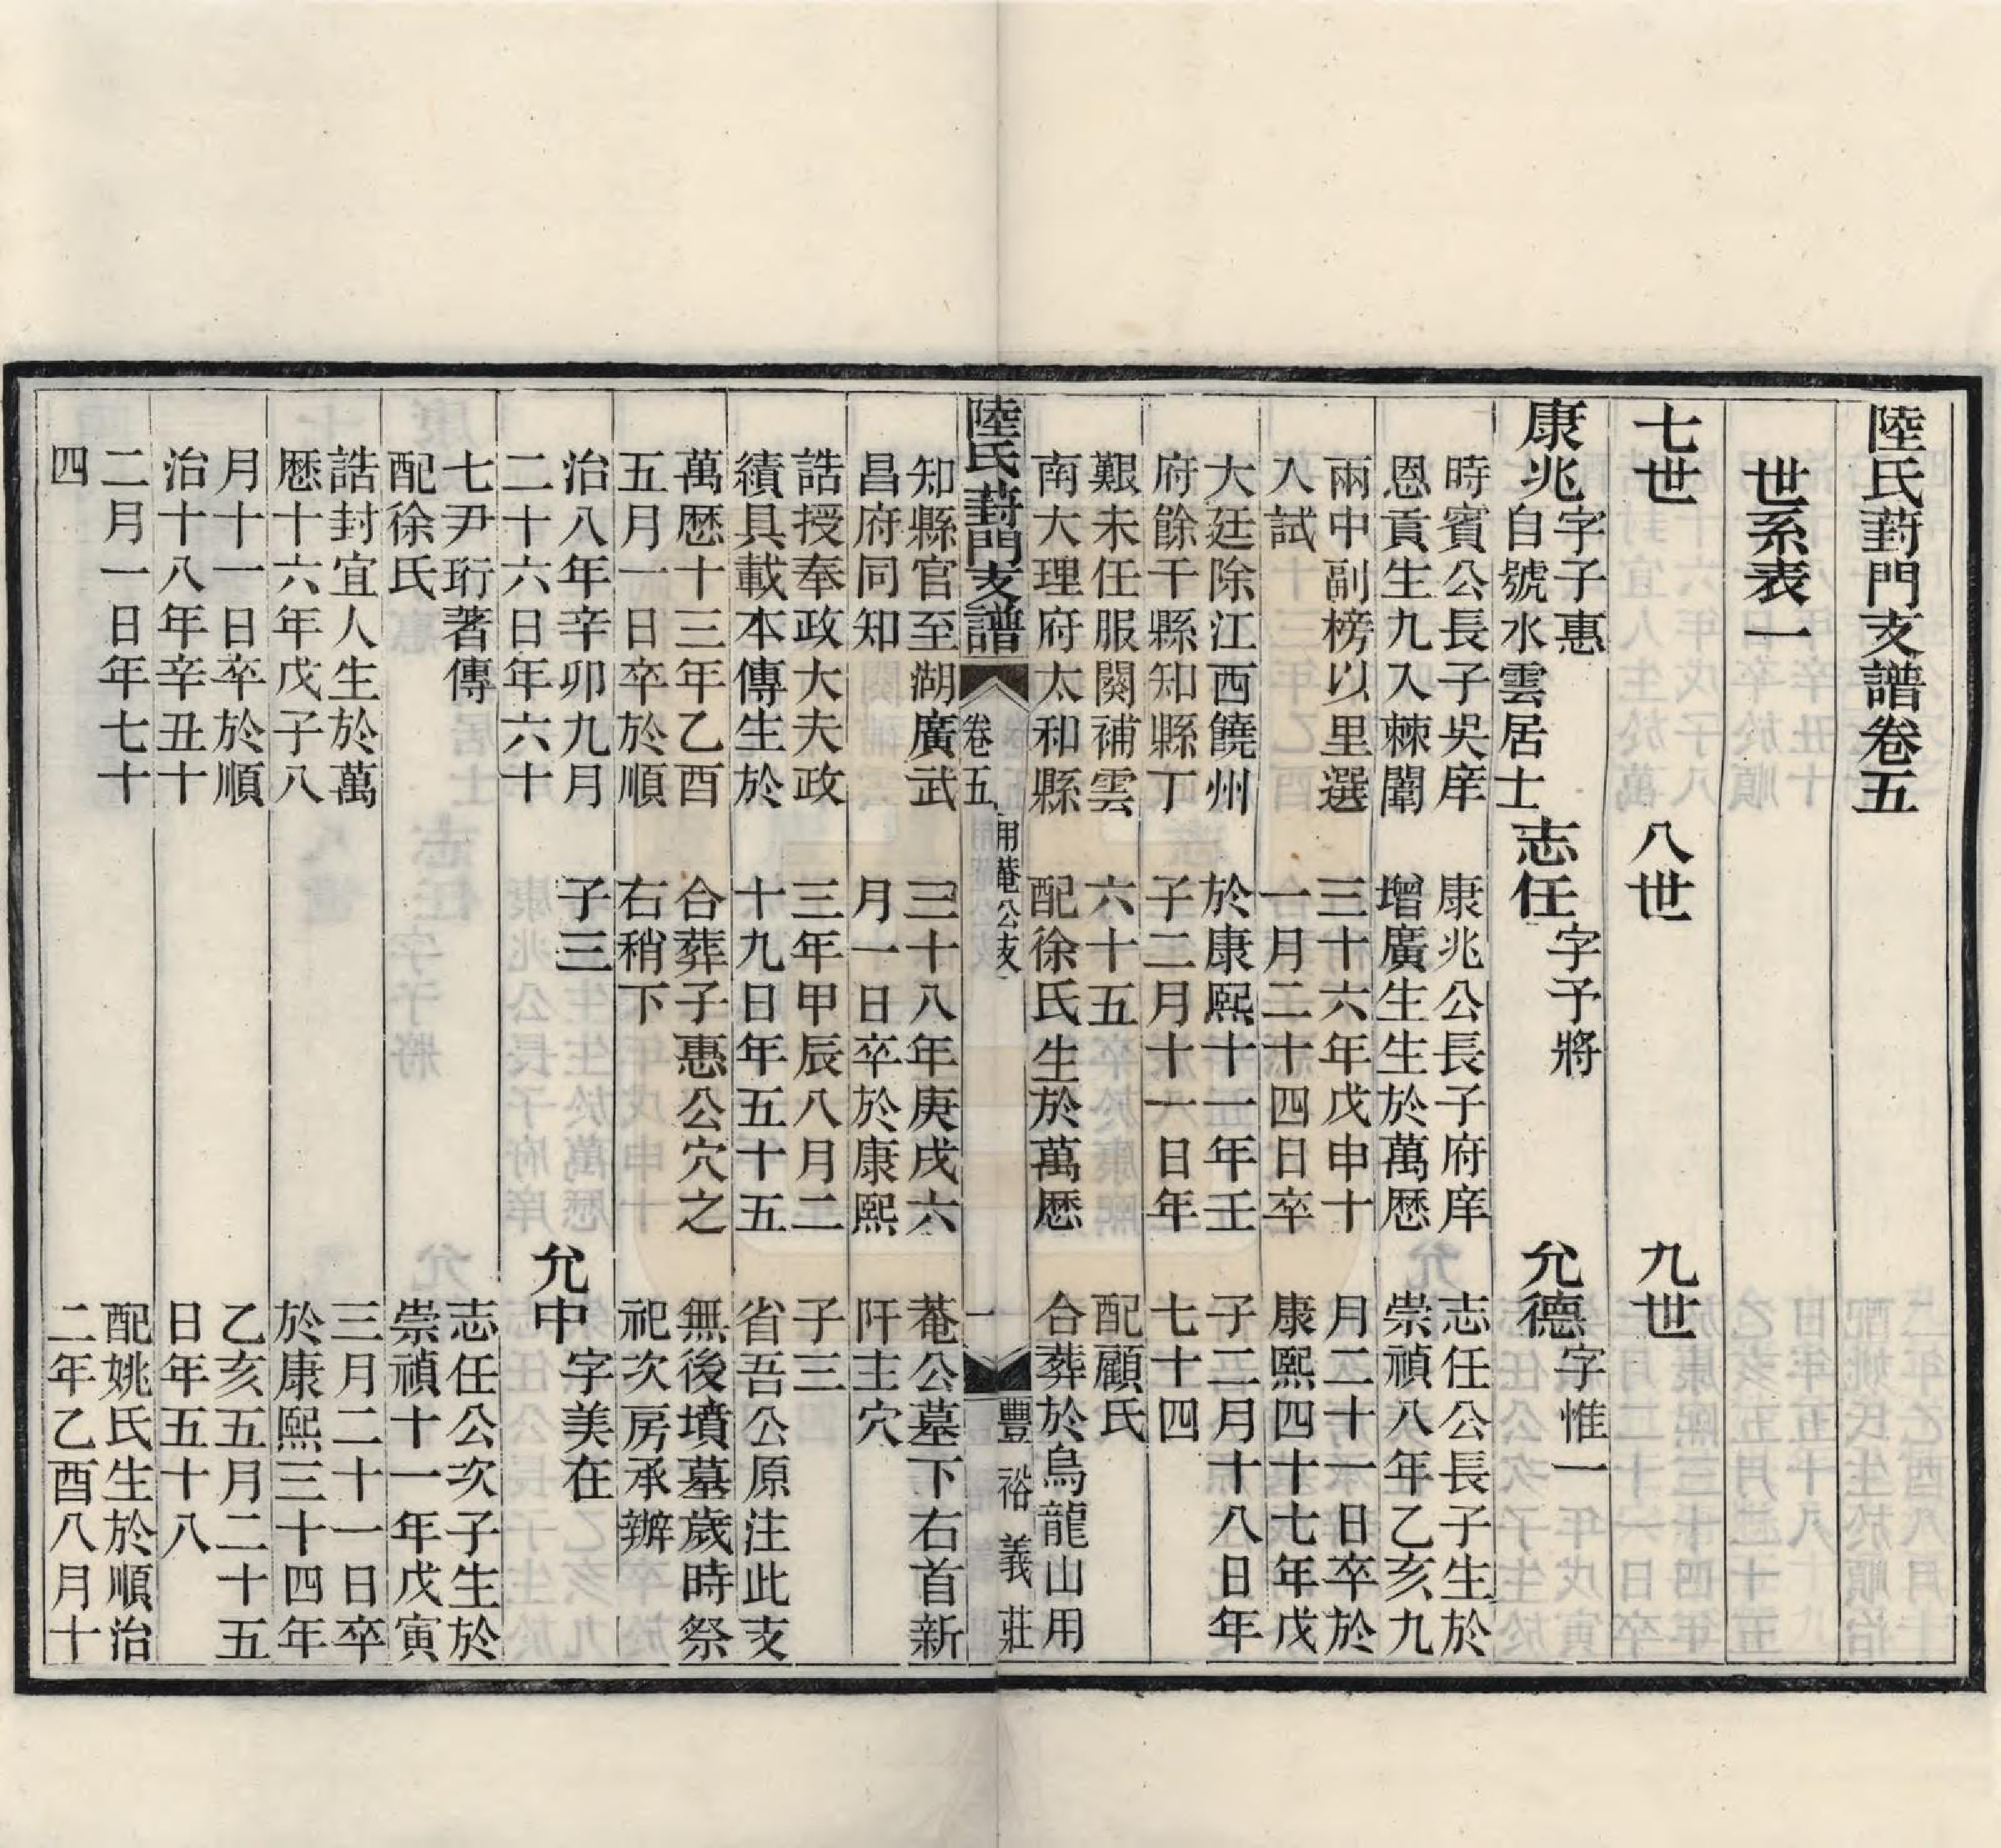 陸氏葑門支譜卷五
世系表一
七世
康兆
字子惠
自號水雲居士
時賓公長子吳庠
恩貢生九入棘闈
兩中副榜以里選
入試
大廷除江西饒州
府餘干縣知縣丁
艱未任服闋補雲
南大理府太和縣
知縣官至湖廣武
昌府同知
誥授奉政大夫政
績具載本傳生於
萬厯十三年乙酉
五月一日卒於順
治八年辛卯九月
二十六日年六十
七尹珩著傳
配徐氏
誥封宜人生於萬
厯十六年戊子八
月十一日卒於順
治十八年辛丑十
二月一日年七十
四
八世
志任
字予將
康兆公長子府庠
增廣生生於萬厯
三十六年戊申十
一月二十四日卒
於康熙十一年壬
子二月十一日年
六十五
配徐氏生於萬厯
三十八年庚戌六
月一日卒於康熙
三年甲辰八月二
十九日年五十五
合葬子惠公穴之
右稍下
子三
九世
允德
字惟一
志任公長子生於
崇禎八年乙亥九
月二十一日卒於
康熙四十七年戊
子二月十八日年
七十四
配顧氏
合葬於烏龍山用
菴公墓下右首新
阡主穴
子三
省吾公原注此支
無後墳墓歲時祭
祀次房承辦
允中
字美在
志任公次子生於
崇禎十一年戊寅
三月二十一日卒
於康熙三十四年
乙亥五月二十五
日年五十八
配姚氏生於順治
二年乙酉八月十
陸氏葑門支譜
卷五
用菴公支
一
豐裕義莊